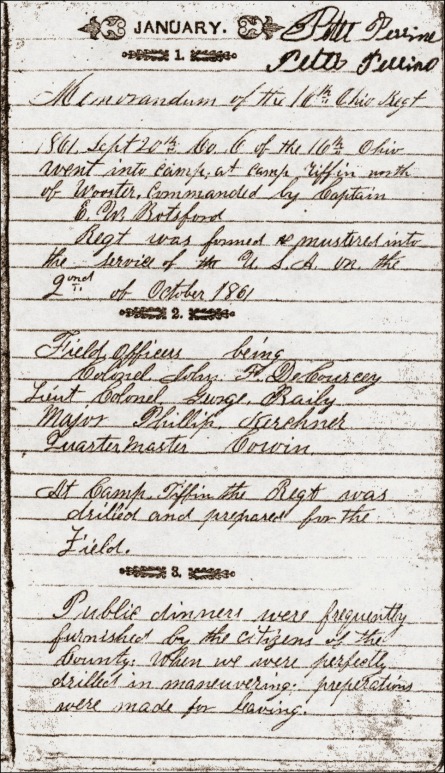 JANUARY.
Peter Perrine
Peter Perrine
1.
Memorandum of the 16th Ohio Regt
1861 Sept 20th Co. C of the 16th Ohio
went into camp, at camp Tiffin north
of Wooster, Commanded by Captain
E. W. Botsford
Regt was formed & mustered into
the service of the U.S.A. on the
2ond of October 1861
2.
Field, Officers being
Colonel John F. DeCourcey
Lieut Colonel George, Baily
Major Phillip Kerchner
Quartermaster Cowin
At Camp Tiffin the Regt was
drilled and prepared for the
Field.
3.
Public dinners were frequently
furnished by the citizens of the
County: When we were perfectly
drilled in maneuvering: preperations
were made for leaving.